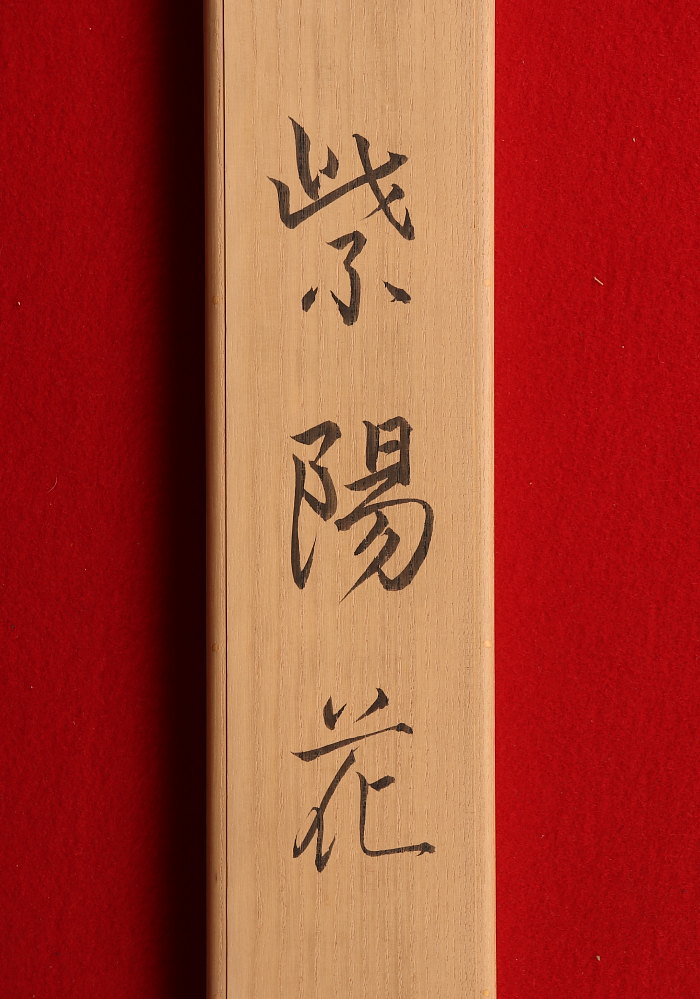 紫陽花